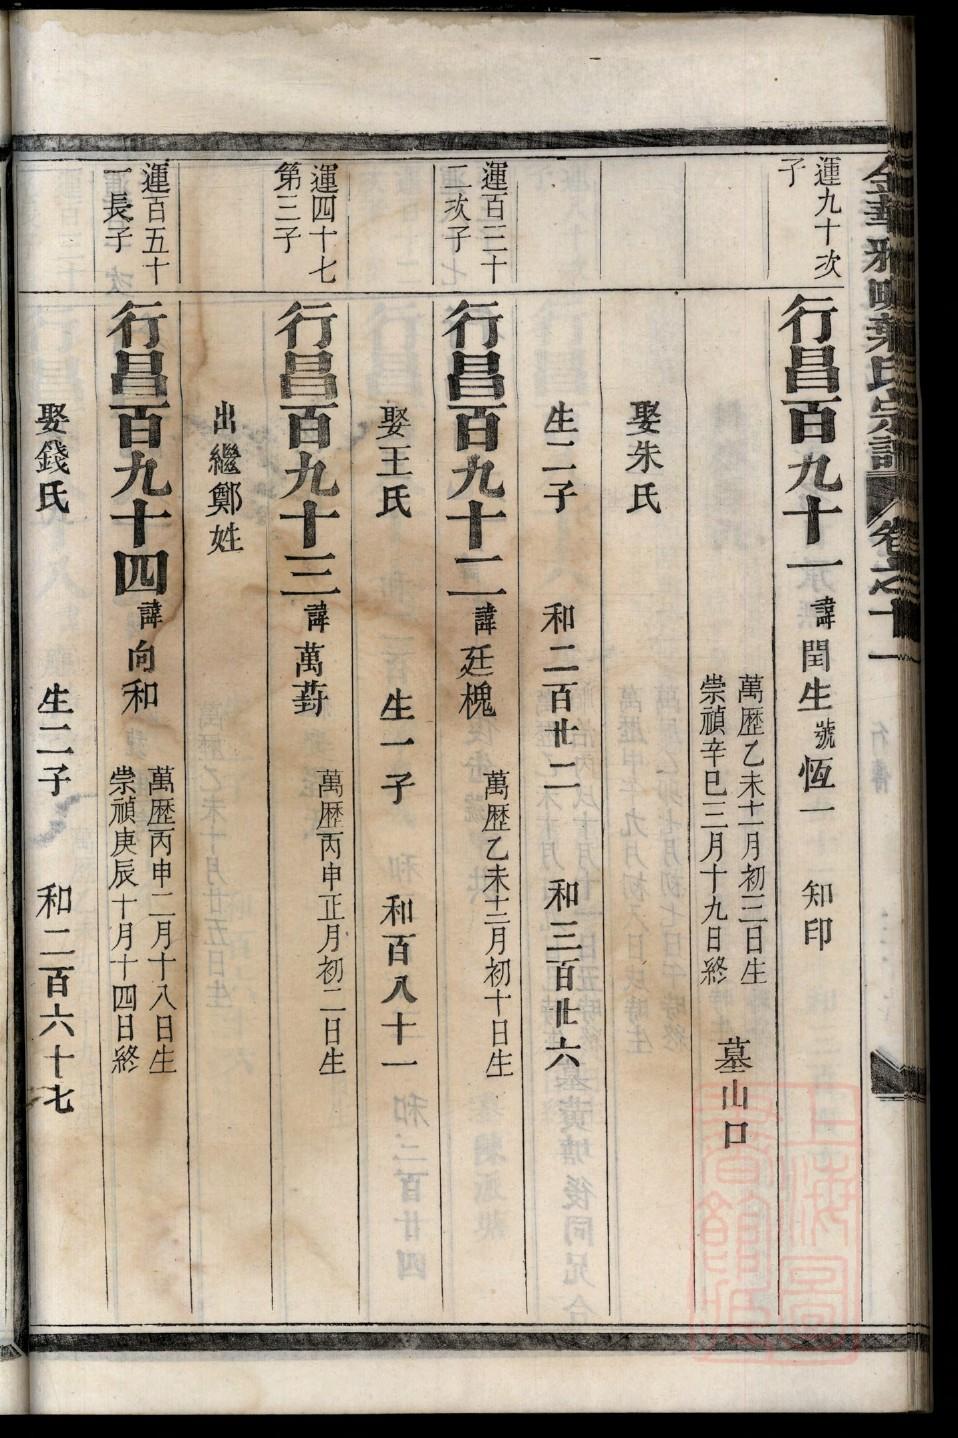 運九十次
子
行昌百九十一 諱閏生 號恆一 知印
萬歷乙未十一月初三日生
崇禎辛巳三月十九日終
墓山口
娶朱氏
生二子 和二百廿二 和三百廿六
運百三十
二次子
行昌百九十二 諱廷槐
萬歷乙未十二月初十日生
娶王氏 生一子 和百八十一
運四十七
第三子
行昌百九十三 諱萬
萬歷丙申正月初二日生
出繼鄭姓
運百五十
一長子
行昌百九十四 諱向和
萬歷丙申二月十八日生
崇禎庚辰十月十四日終
娶錢氏 生二子 和二百六十七
葉氏宗譜 卷之十一